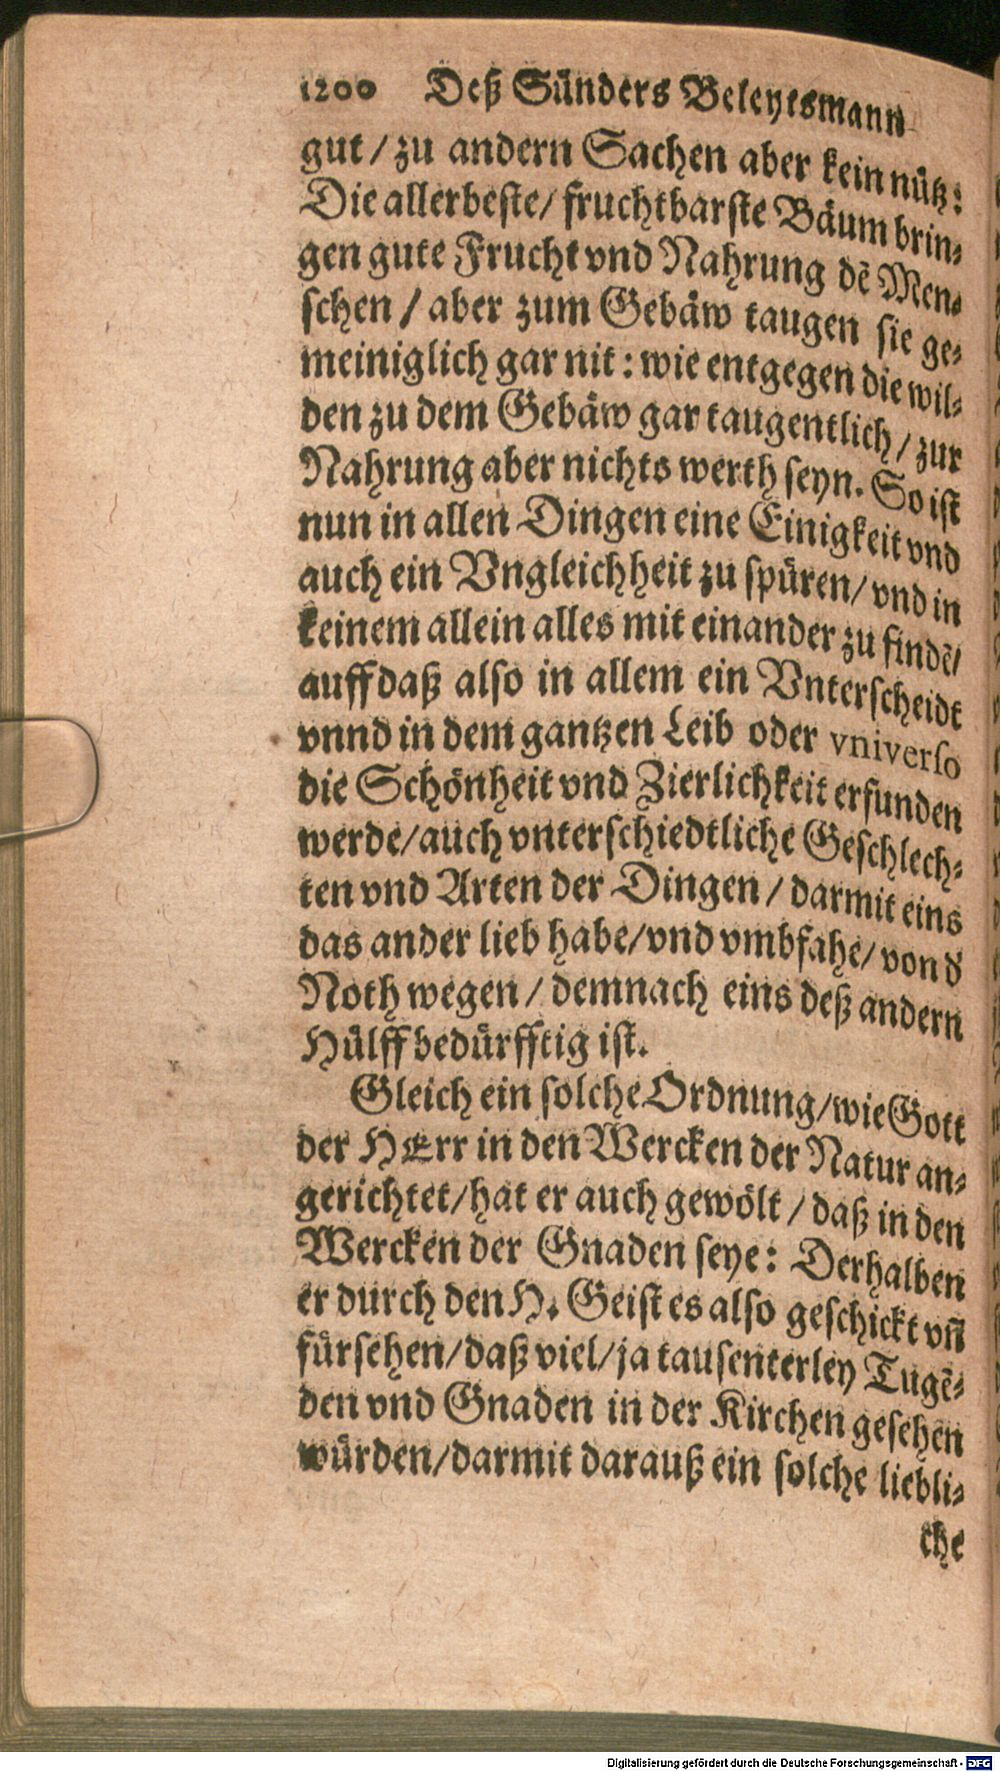 1200 Deß Sünders Beleytsmann
gut / zu andern Sachen aber kein nütz:
Die allerbeste / fruchtbarste Bäum brin⸗
gen gute Frucht vnd Nahrung dẽ Men⸗
schen / aber zum Gebäw taugen sie ge⸗
meiniglich gar nit : wie entgegen die wil⸗
den zu dem Gebäw gar taugentlich / zur
Nahrung aber nichts werth seyn. So ist
nun in allen Dingen eine Einigkeit vnd
auch ein Vngleichheit zu spüren / vnd in
keinem allein alles mit einander zu findẽ /
auff daß also in allem ein Vnterscheidt
vnnd in dem gantzen Leib oder vniverso
die Schönheit vnd Zierlichkeit erfunden
werde / auch vnterschiedtliche Geschlech⸗
ten vnd Arten der Dingen / darmit eins
das ander lieb habe / vnd vmbfahe / von d
Noth wegen / demnach eins deß andern
Hülff bedürfftig ist.
Gleich ein solche Ordnung / wie Gott
der HErr in den Wercken der Natur an⸗
gerichtet / hat er auch gewölt / daß in den
Wercken der Gnaden seye: Derhalben
er durch den H. Geist es also geschickt vñ
fürsehen / daß viel / ja tausenterley Tugẽ⸗
den vnd Gnaden in der Kirchen gesehen
würden / darmit darauß ein solche liebli⸗
che
Digitalisierung gefördert durch die Deutsche Forschungsgemeinschaft - DFG